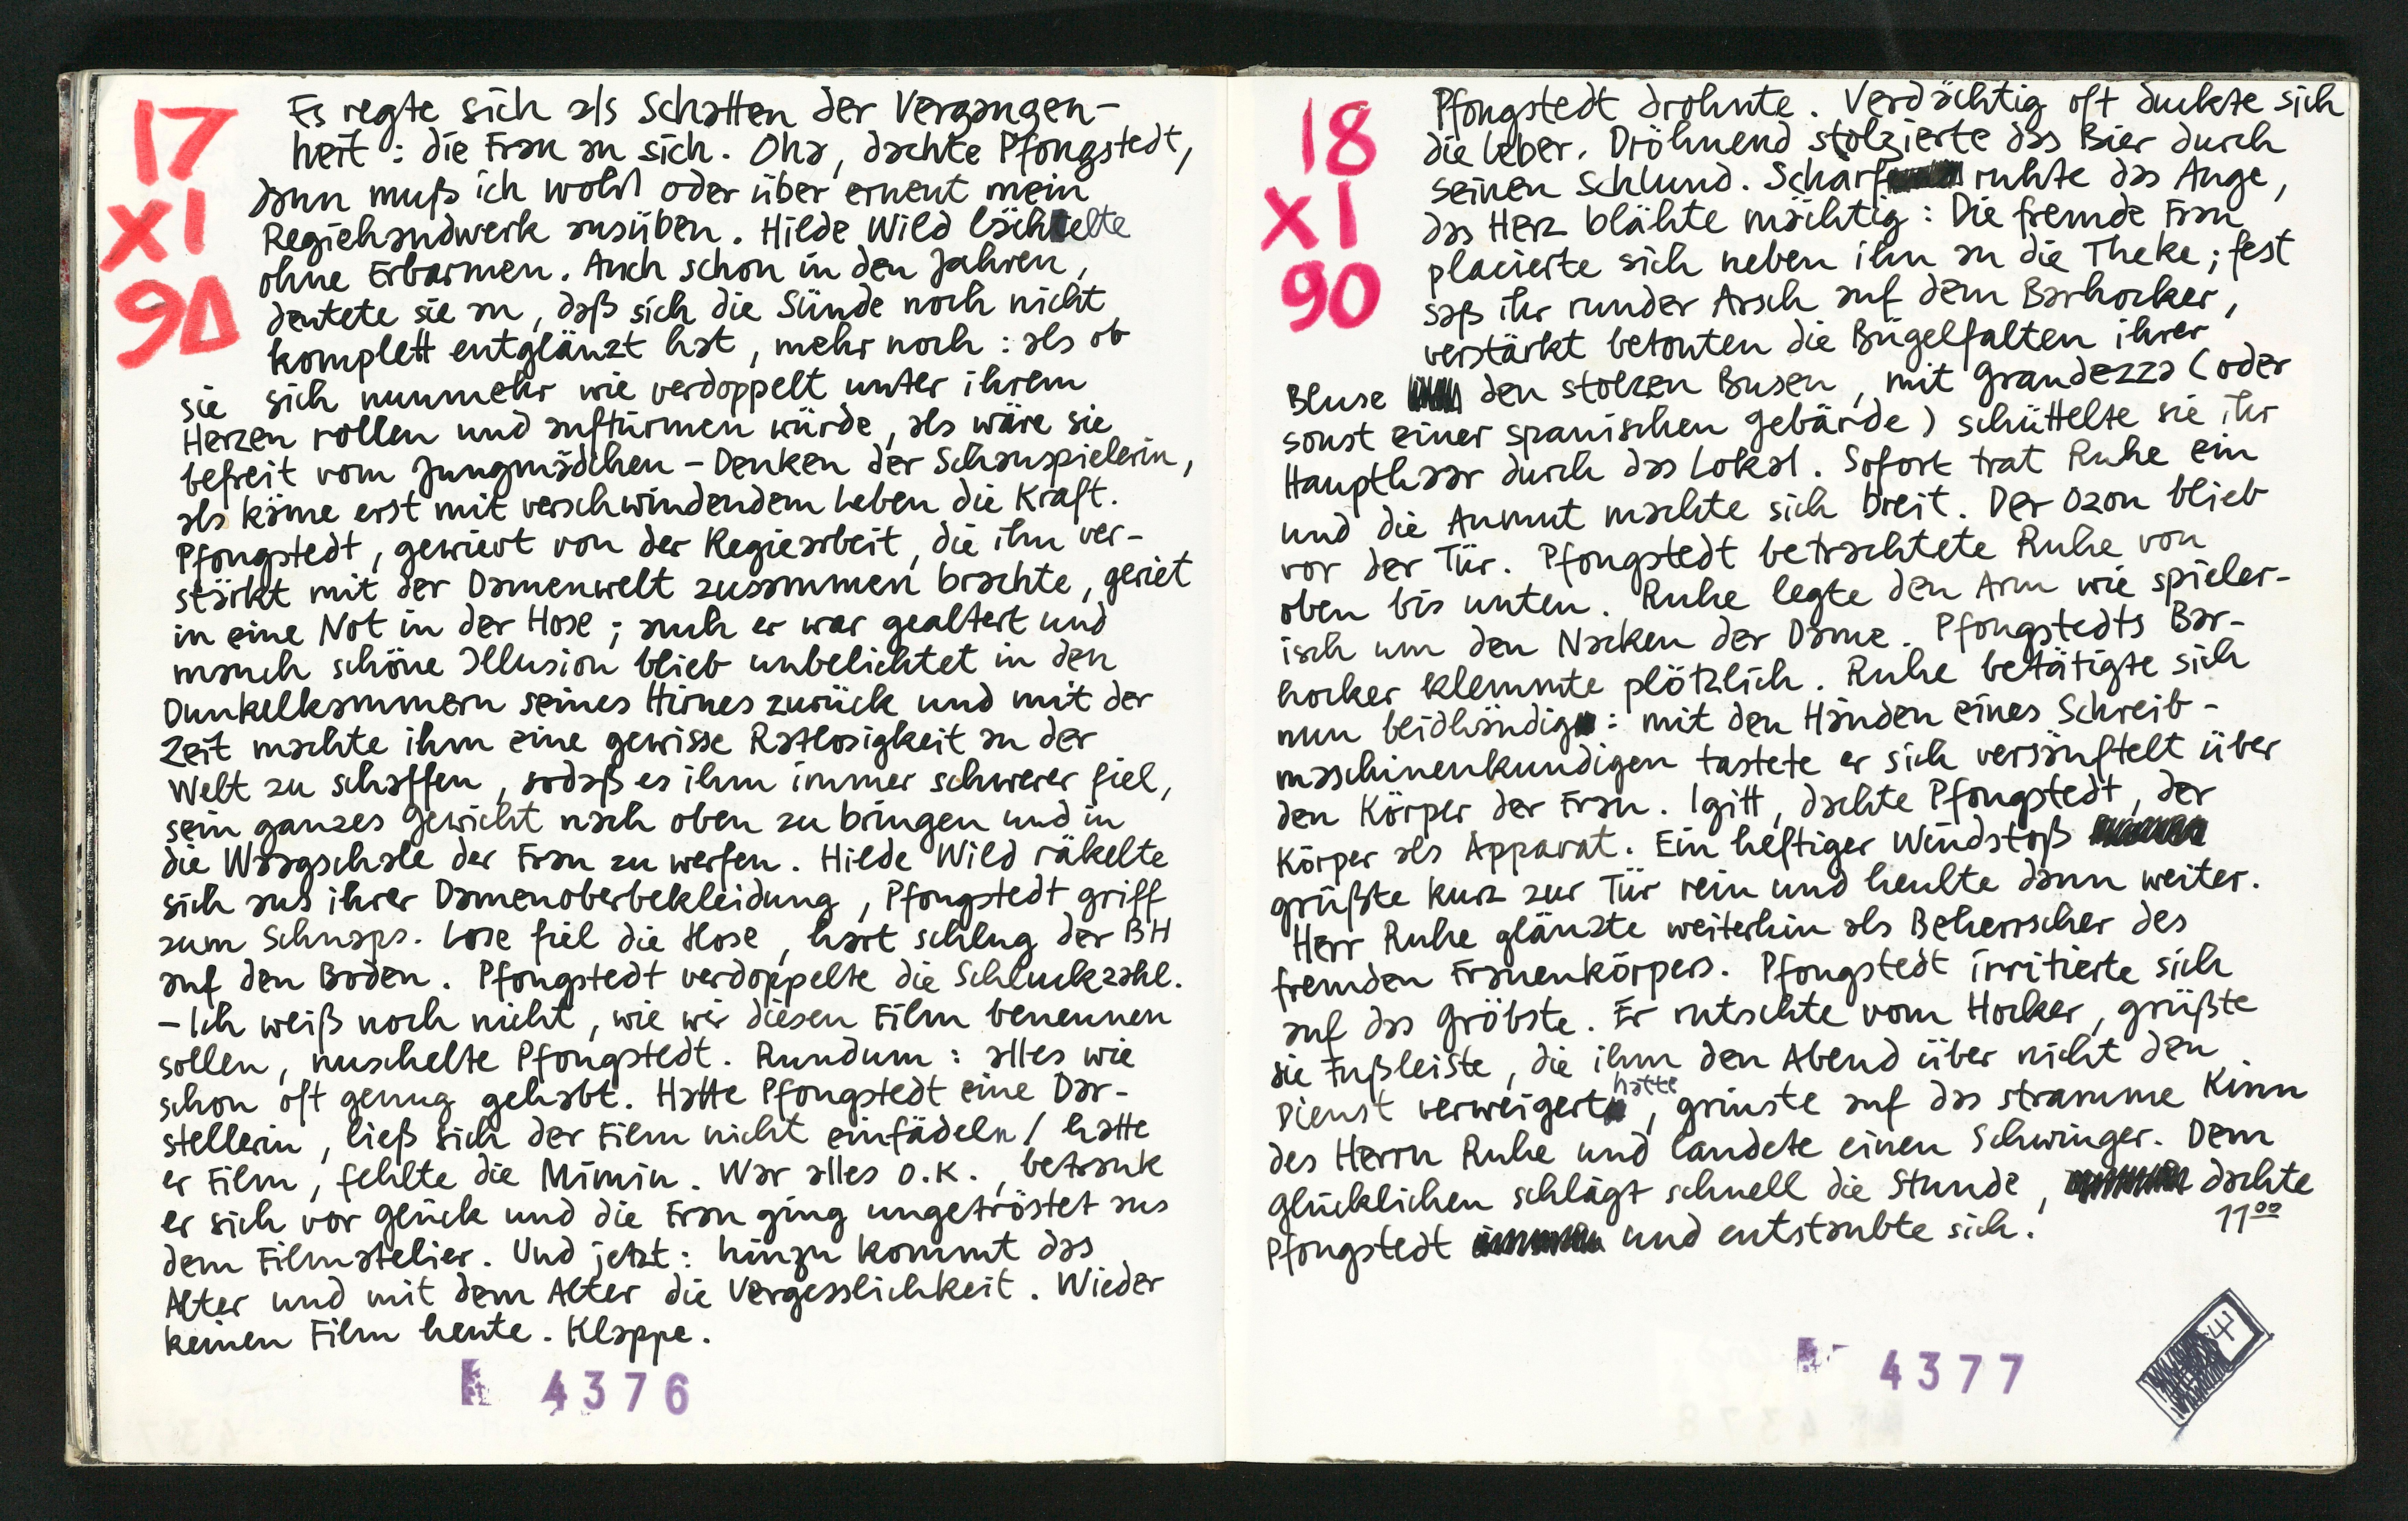 17
XI
90
Es regte sich als Schatten der Vergangen-
heit: die Frau an sich. Oha, dachte Pfongstedt,
dann muß ich wohl oder über erneut mein
Regiehandwerk ausüben. Hilde Wild lächelte
ohne Erbarmen. Auch schon in den Jahren,
deutete sie an, daß sich die Sünde noch nicht
komplett entglänzt hat, mehr noch: als ob
sie sich nunmehr wie verdoppelt unter ihrem
Herzen rollen und auftürmen würde, als wäre sie
befreit vom Jungmädchen-Denken der Schauspielerin,
als käme erst mit verschwindendem Leben die Kraft.
Pfongstedt, gewievt von der Regiearbeit, die ihn ver-
stärkt mit der Damenwelt zusammen brachte, geriet
in eine Not in der Hose; auch er war gealtert und
manch schöne Illusion blieb unbelichtet in den
Dunkelkammern seines Hirnes zurück und mit der
Zeit machte ihm eine gewisse Ratlosigkeit an der
Welt zu schaffen, sodaß es ihm immer schwerer fiel,
sein ganzes Gewicht nach oben zu bringen und in
die Waagschale der Frau zu werfen. Hilde Wild räkelte
sich aus ihrer Damenoberbekleidung, Pfongstedt griff
zum Schnaps. Lose fiel die Hose, hart schlug der BH
auf den Boden. Pfongstedt verdoppelte die Schluckzahl.
- Ich weiß noch nicht, wie wir diesen Film benennen
sollen, nuschelte Pfongstedt. Rundum: alles wie
schon oft genug gehabt. Hatte Pfongstedt eine Dar-
stellerin, ließ sich der Film nicht einfädeln / hatte
er Film, fehlte die Mimin. War alles o.k., betrank
er sich vor Glück und die Frau ging ungetröstet aus
dem Filmatelier. Und jetzt: hinzu kommt das
Alter und mit dem Alter die Vergesslichkeit. Wieder
keinen Film heute. Klappe.
4376
18
XI
90
Pfongstedt drohnte. Verdächtig oft duckte sich
die Leber. Dröhnend stolzierte das Bier durch
seinen Schlund. Scharf ruhte das Auge,
das Herz blähte mächtig: Die fremde Frau
placierte sich neben ihn an die Theke; fest
saß ihr runder Arsch auf dem Barhocker,
verstärkt betonten die Bügelfalten ihrer
Bluse den stolzen Busen, mit Grandezza (oder
sonst einer spanischen Gebärde) schüttelte sie ihr
Haupthaar durch das Lokal. Sofort trat Ruhe ein
und die Anmut machte sich breit. Der Ozon blieb
vor der Tür. Pfongstedt betrachtete Ruhe von
oben bis unten. Ruhe legte den Arm wie spieler-
isch um den Nacken der Dame. Pfongstedts Bar-
hocker klemmte plötzlich. Ruhe betätigte sich
nun beidhändig: mit den Händen eines Schreib-
maschinenkundigen tastete er sich versänftelt über
den Körper der Frau. Igitt, dachte Pfongstedt, der
Körper als Apparat. Ein heftiger Windstoß
grüßte kurz zur Tür rein und heulte dann weiter.
Herr Ruhe glänzte weiterhin als Beherrscher des
fremden Frauenkörpers. Pfongstedt irritierte sich
auf das Gröbste. Er rutschte vom Hocker, grüßte
die Fußleiste, die ihm den Abend über nicht den
Dienst verweigert hatte, grinste auf das stramme Kinn
des Herrn Ruhe und landete einen Schwinger. Dem
Glücklichen schlägt schnell die Stunde, dachte
Pfongstedt und entstaubte sich.
11⁰⁰
4377